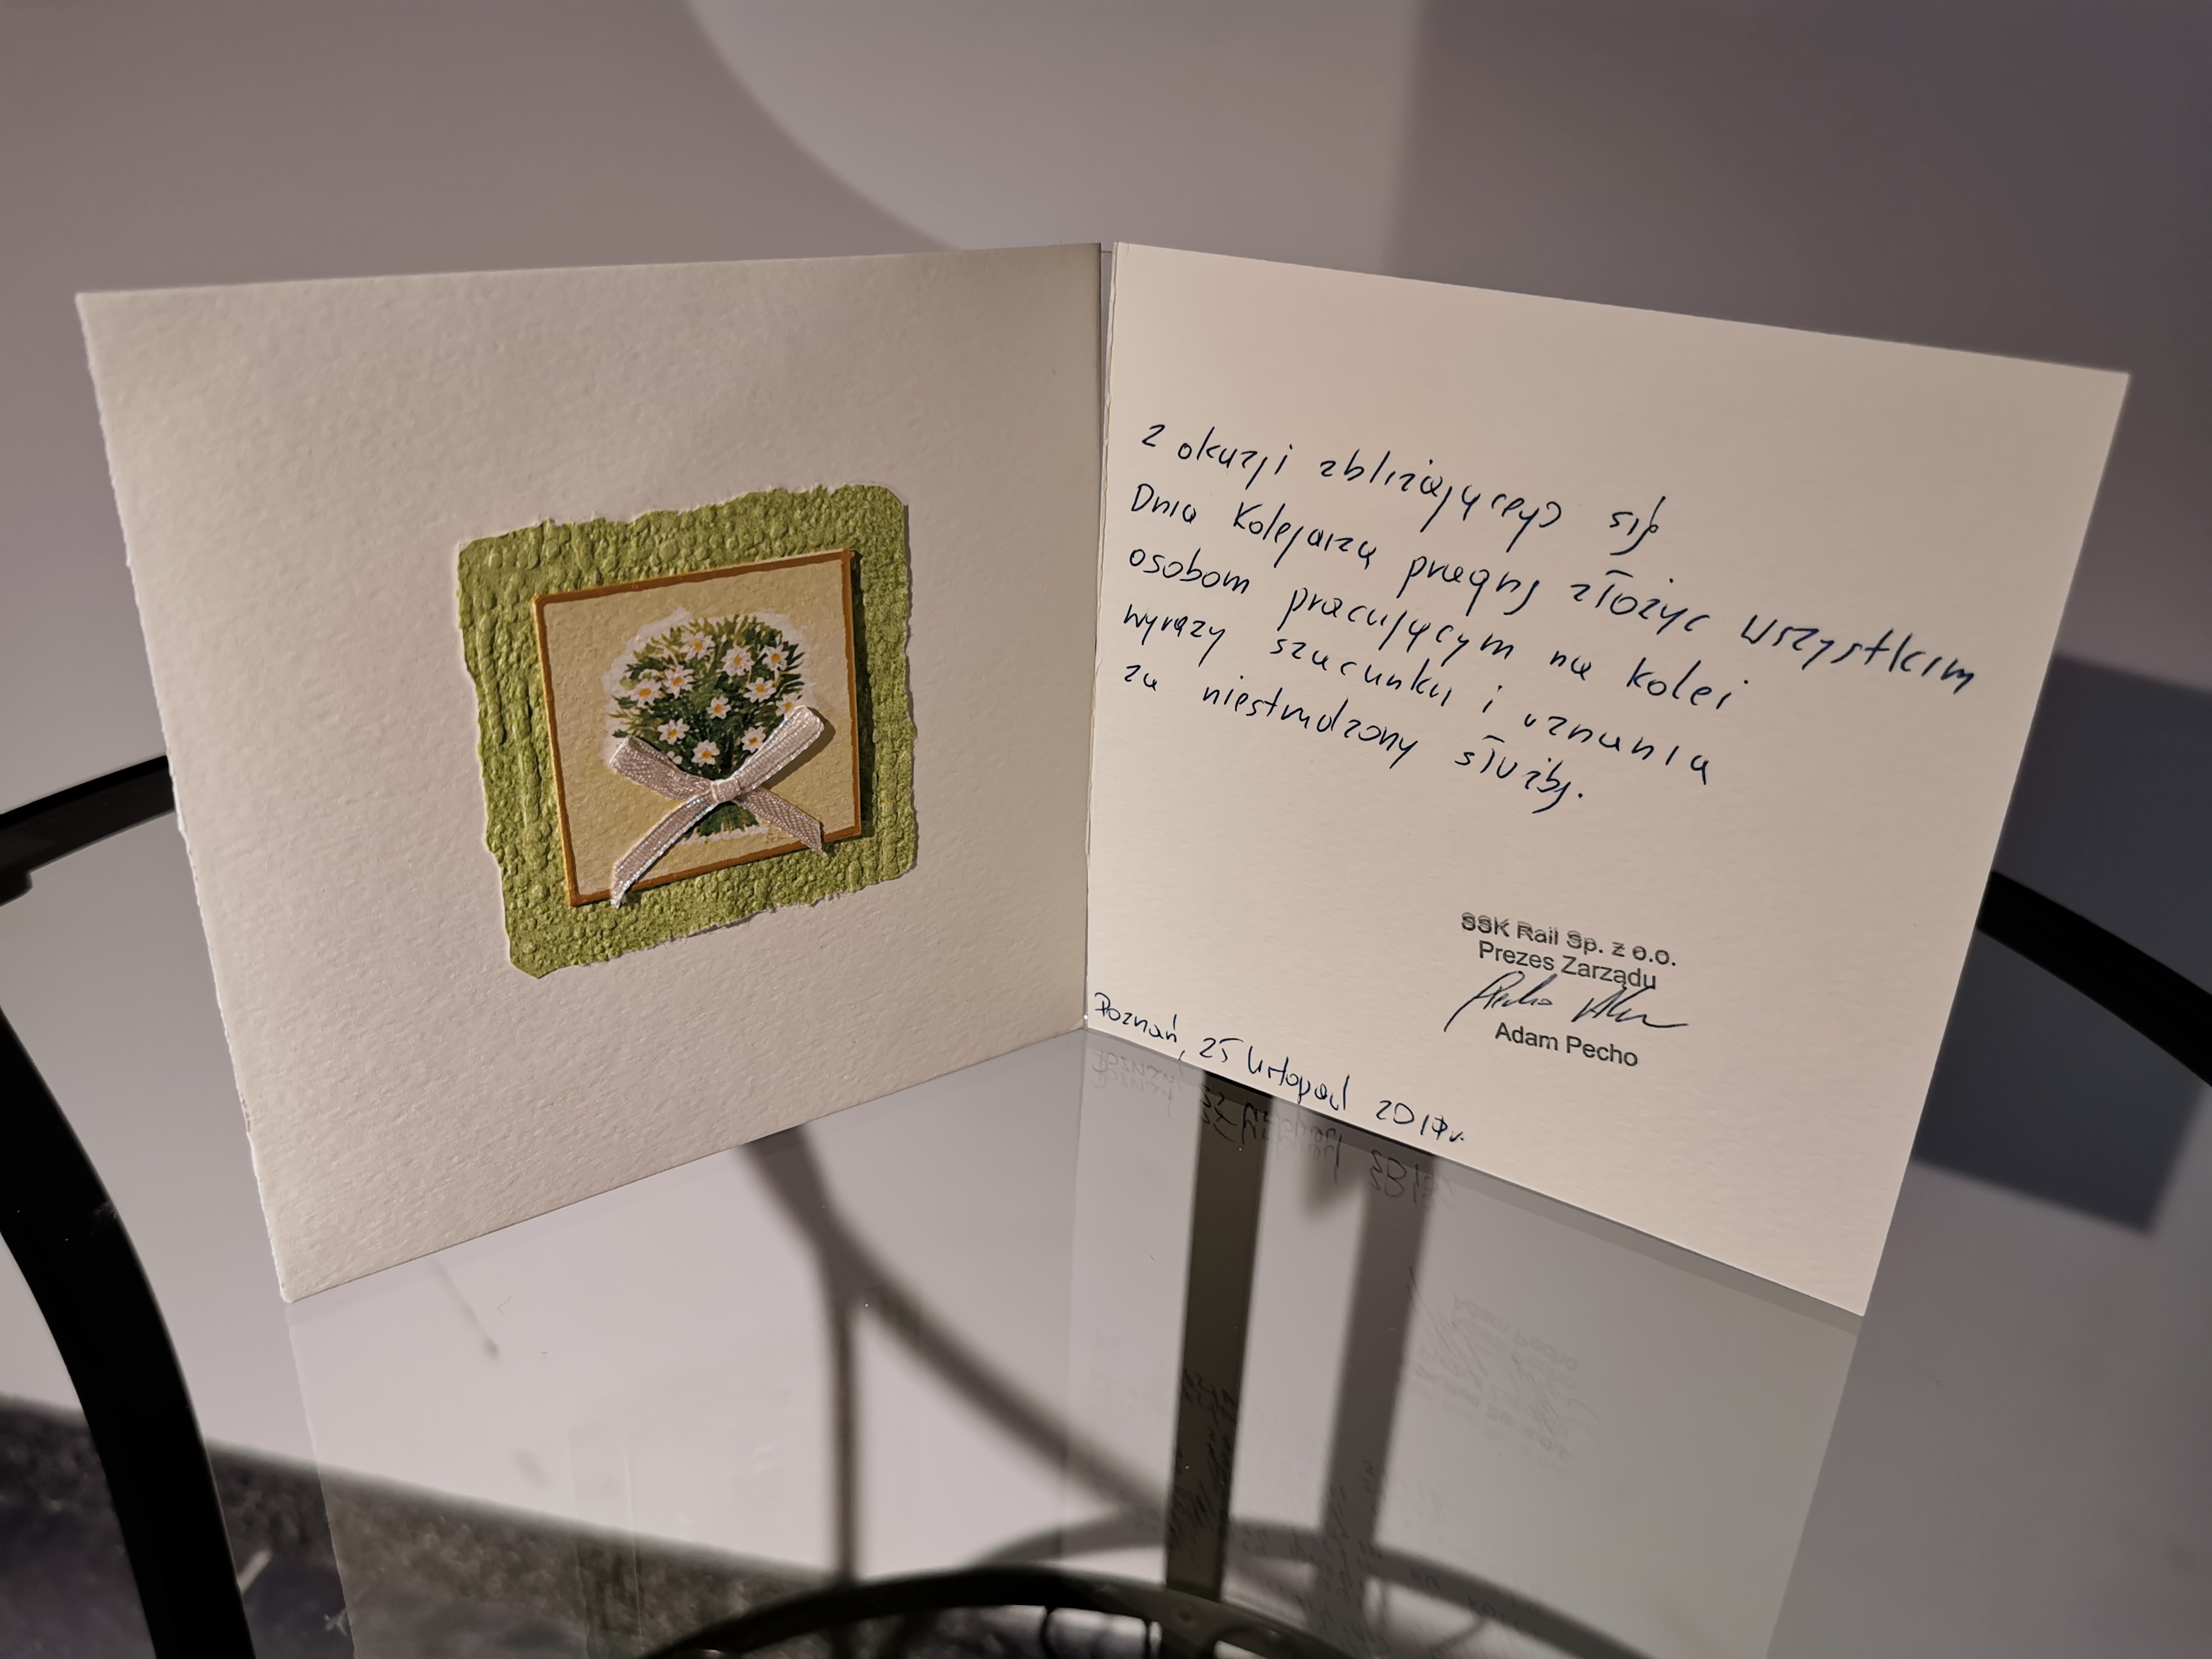 Z okazji zbliżającego się
Dnia Kolejarza pragnę złożyć wszystkim
osobom pracującym na kolei
wyrazy szacunku i uznania
za niestrudzoną służbę.
SSK Rail Sp. z o.o.
Prezes Zarządu
Adam Pecho
Poznań, 25 listopad 2017r.